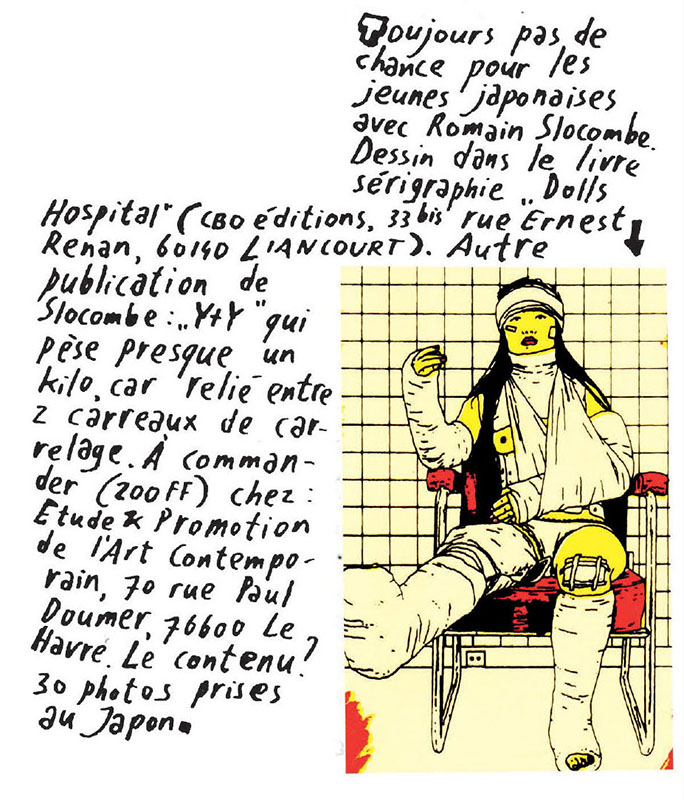 Toujours pas de
chance pour les
jeunes japonaises
avec Romain Slocombe.
Dessin dans le livre
sérigraphie „Dolls
Hospital" (CBO éditions, 33 bis rue Ernest
Renan, 60140 LIANCOURT). Autre
publication de
Slocombe: „Y+Y" qui
pèse presque un
kilo, car relié entre
2 carreaux de car-
relage. À comman-
der (200FF) chez:
Etude & Promotion
de l'Art Contempo-
rain, 70 rue Paul
Doumer, 76600 Le
Havre. Le contenu?
30 photos prises
au Japon.